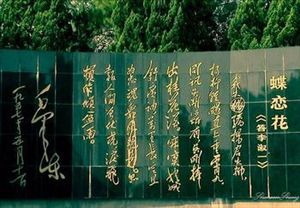 蝶恋花
《答李淑一》
我失骄杨君失柳
杨柳轻飏直上重霄九
问讯吴刚何所有吴刚捧
出桂花酒寂寞嫦娥
舒广袖万里长空且
为忠魂舞忽
报人间曾伏虎泪飞
顿作倾盆雨
毛泽东
一九五七年五月十一日